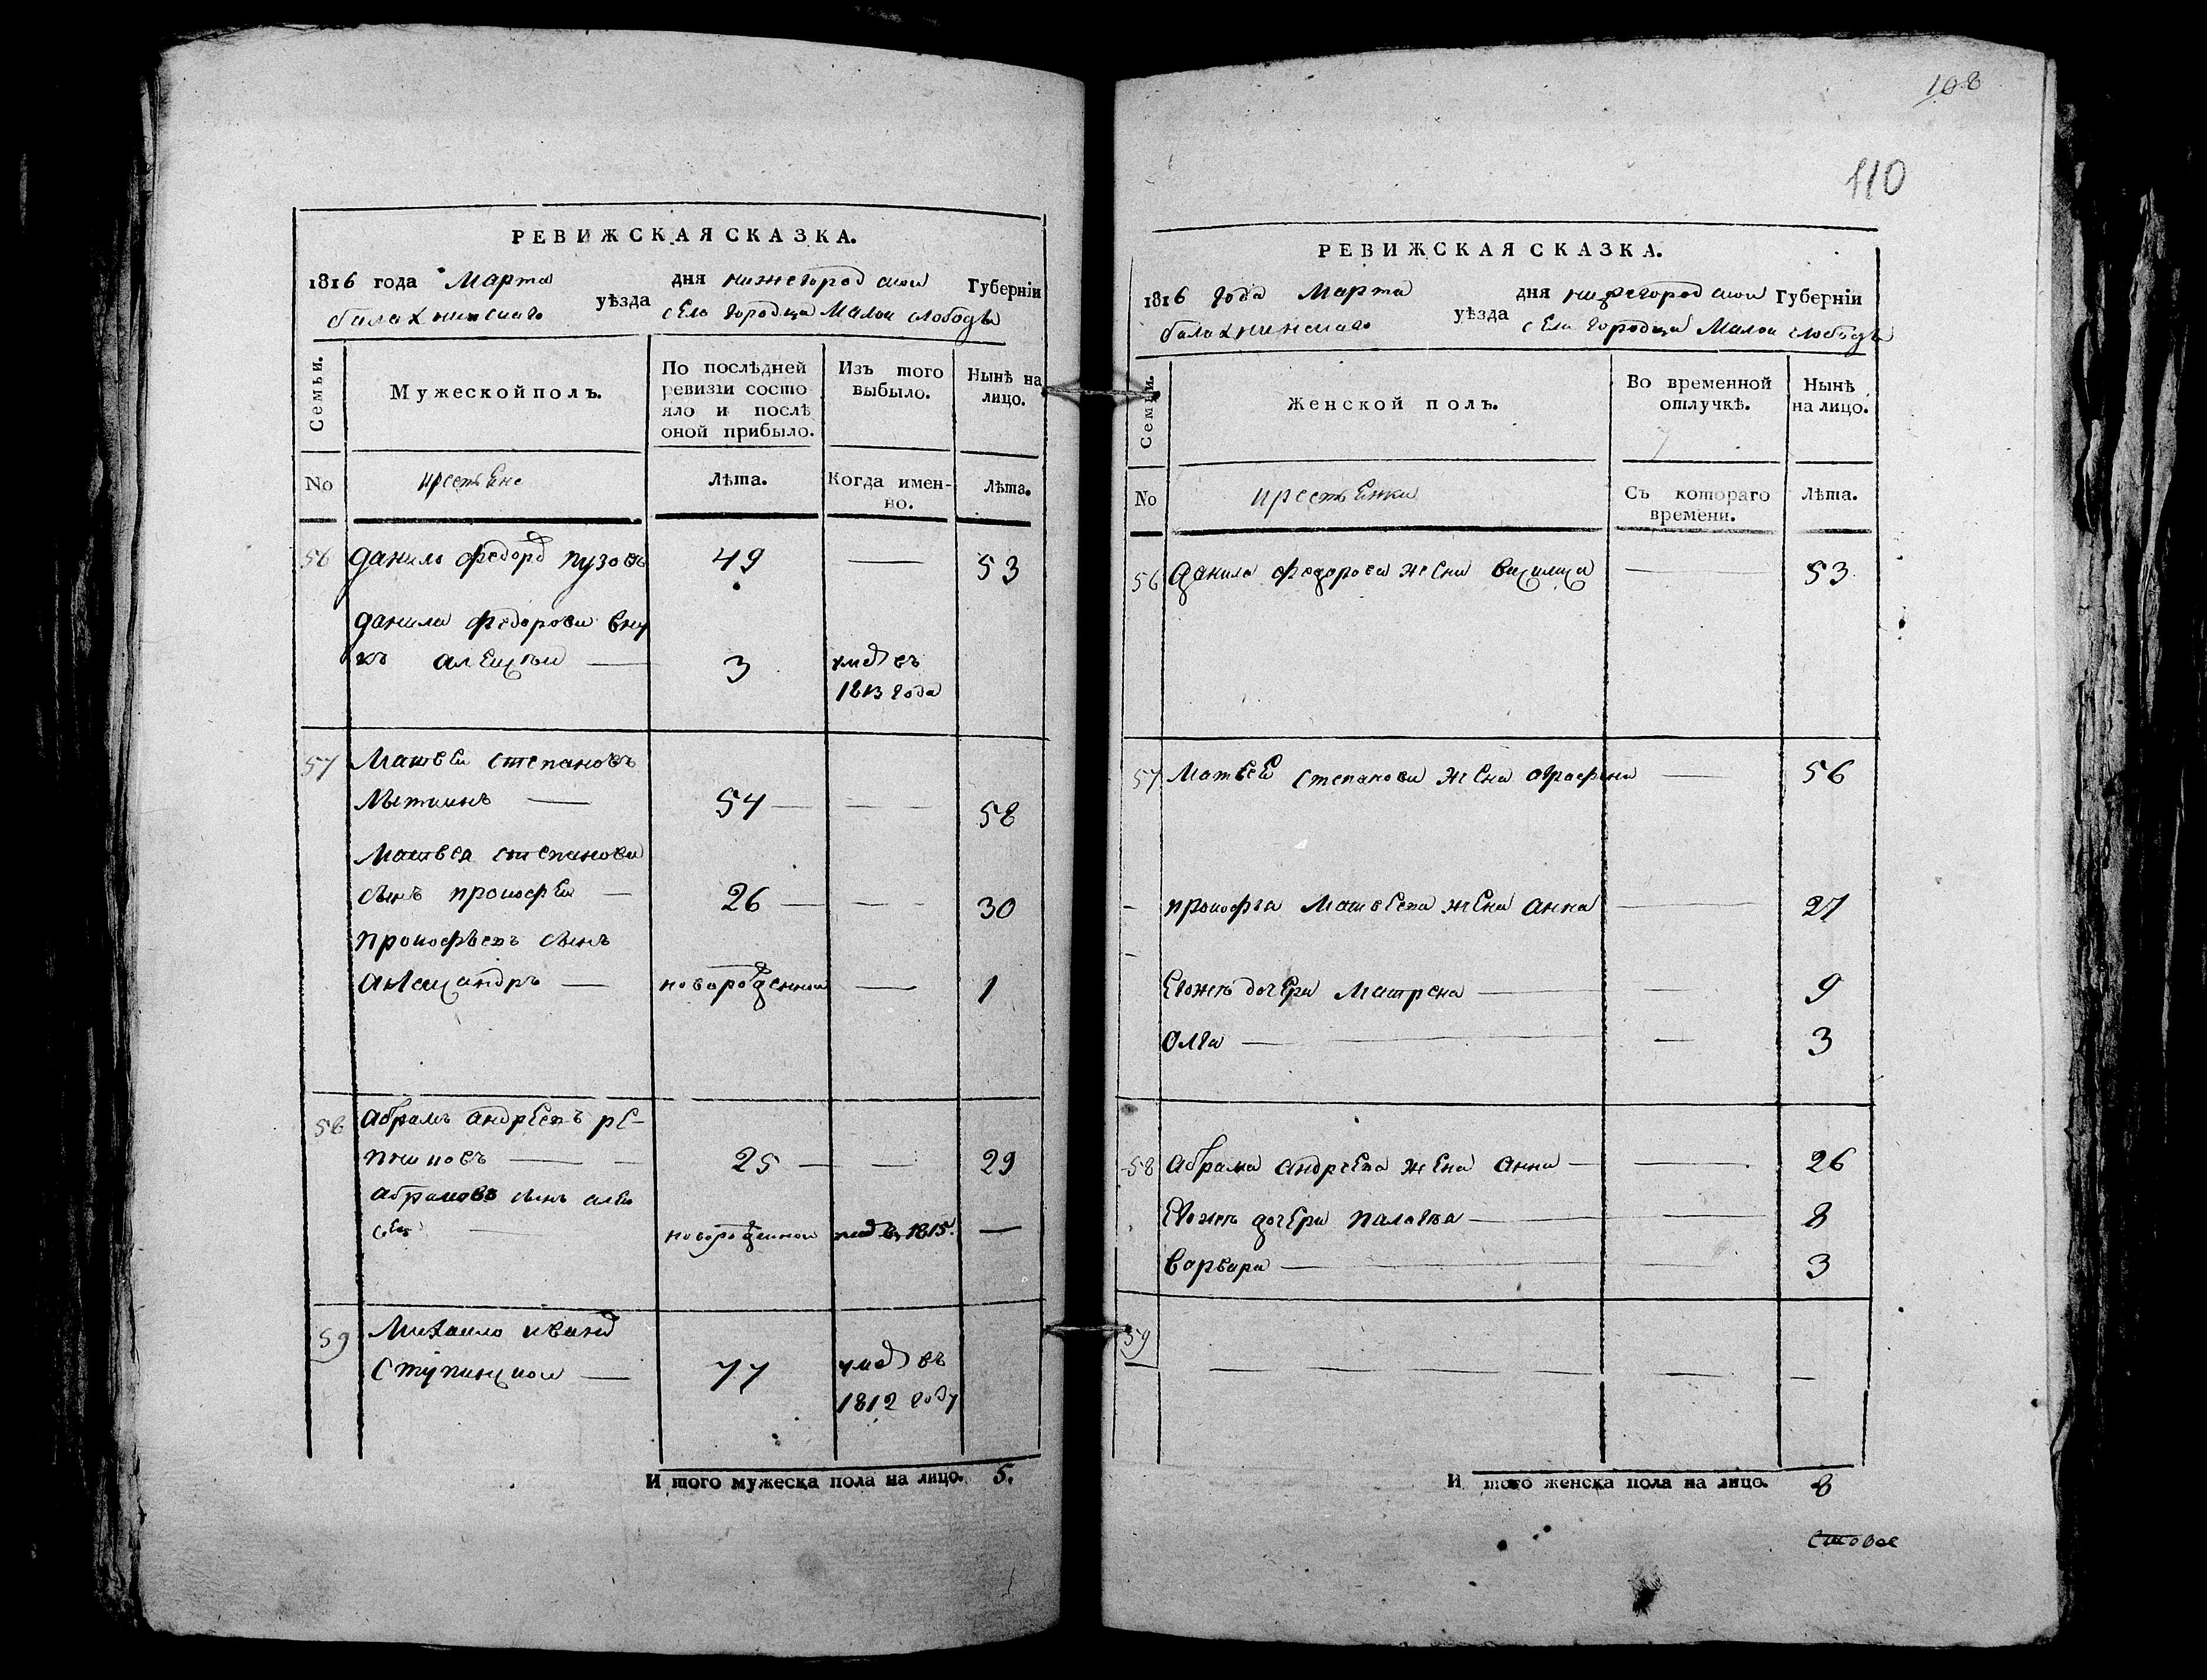 РЕВИЖСКАЯ СКАЗКА.
1816 года Марта дня нижегородской Губерніи
балахнинскаго уѣзда села городца Малой слободы
Семьи.
Мужеской полъ.
По послѣдней
ревизіи состо
яло и послѣ
оной прибыло.
Изъ того
выбыло.
Нынѣ на
лицо.
No
крестьяне
Лѣта.
Когда имен-
но.
Лѣта.
56 Данило Федоровъ пузовъ 49 — 53
Данила Федорова вну
къ алексѣй — 3 умеръ въ
1813 года
57 Матвей степановъ
— 54 — — — 58
Матвея степанова
сынъ прокофей — 26 — — — 30
прокофьевъ сынъ
александръ — новорожденной — 1
58 абрамъ андреевъ ре-
— — 25 — — 29
абрамовъ сынъ алек
сей — новорожденной умеръ въ 1815. —
59 Михайло ивановъ
— 77 умеръ въ
1812 году
И того мужеска пола на лицо. 5.
108
110
РЕВИЖСКАЯ СКАЗКА.
1816 года Марта дня нижегородской Губерніи
балахнинскаго уѣзда села городца Малой слободы
Семьи.
Женской полъ.
Во временной
отлучкѣ.
Нынѣ
на лицо.
No
крестьянки
Съ котораго
времени.
Лѣта.
56 Данила Федорова жена василиса — 53
57 Матвея степанова жена — 56
- прокофья Матвеева жена анна — 27
- Евожъ дочери Матрена — — 9
олга — — 3
58 абрама андреева жена анна — — 26
Евожъ дочери палагѣа — — 8
варвара — — 3
59 — — — — —
И того женска пола на лицо. 8